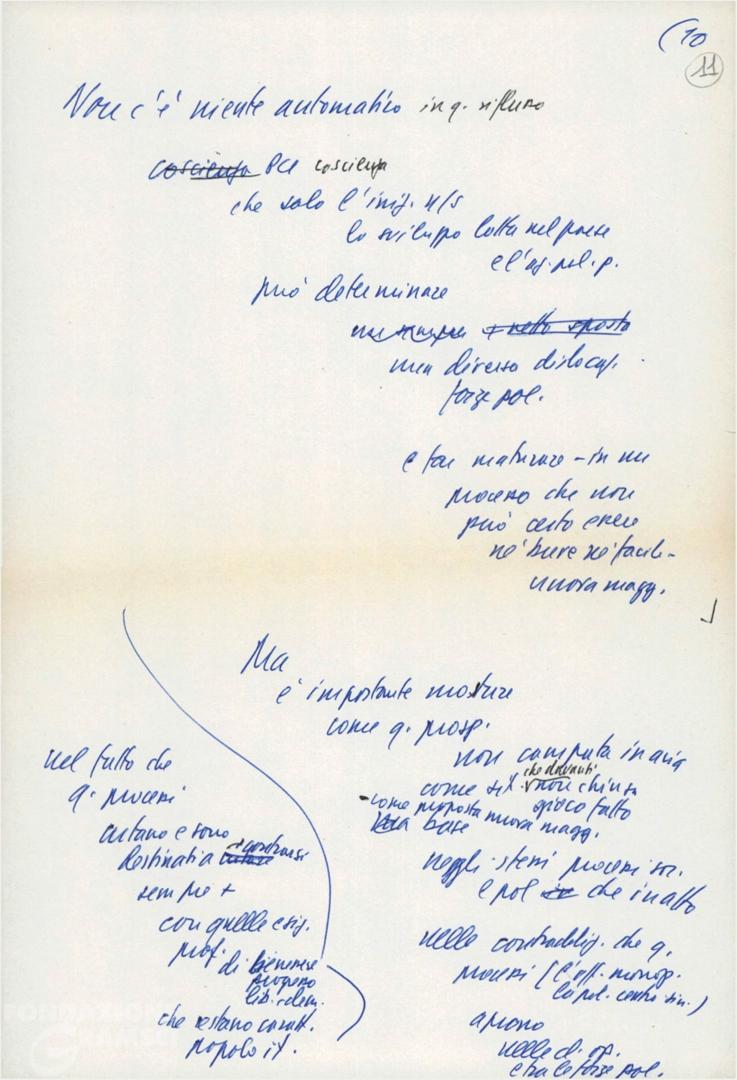 (10
11
Non c'è niente automatico in q. riflusso
coscienza PCI coscienza
che solo l'iniz. n/s
lo sviluppo lotta nel paese
e l'az. pol. p.
può determinare
netto sposta
una diversa dislocaz.
forze pol.
e far maturare - in un
processo che non
può certo essere
né breve né facile -
nuova magg.
Ma
è importante mostrare
come q. prosp.
non campata in aria
che davanti
come sit. non chiusa
gioco fatto
- come proposta nuova magg.
base
negli stessi processi soc.
e pol che in atto
nelle contraddiz. che q.
processi (l'off. monop.
la pol. centro sin.)
aprono
nelle di op.
e tra le forze pol.
nel fatto che
q. processi
urtano e sono
destinati a contrarsi
sempre +
con quelle esig.
prof.
di benessere
progresso
lib. e dem.
che restano caratt.
popolo it.
FONDAZIONE
GRAMSCI